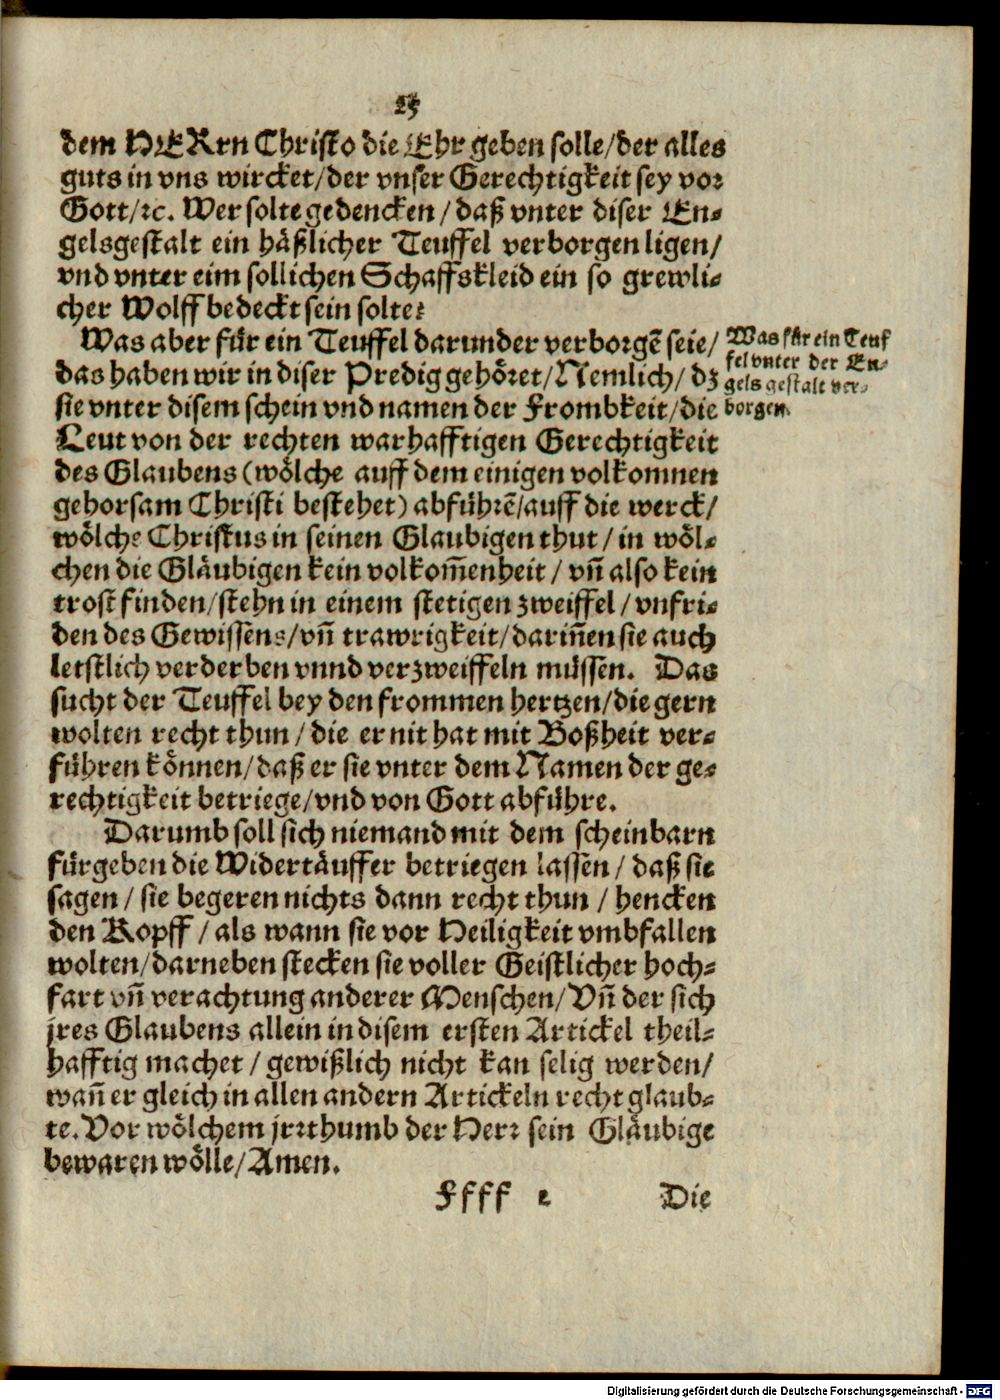 25
dem HERrn Christo die Ehr geben solle/der alles
guts in vns wircket/der vnser Gerechtigkeit sey vor
Gott/ꝛc. Wer solte gedencken/daß vnter diser En-
gelsgestalt ein häßlicher Teuffel verborgen ligen/
vnd vnter eim sollichen Schaffskleid ein so grewli-
cher Wolff bedeckt sein solte?
Was aber für ein Teuffel darunder verborgē seie/
das haben wir in diser Predig gehöret/Nemlich/dz
sie vnter disem schein vnd namen der Frombkeit/die
Leut von der rechten warhafftigen Gerechtigkeit
des Glaubens (wölche auff dem einigen volkomnen
gehorsam Christi bestehet) abführē/auff die werck/
wölche Christus in seinen Glaubigen thut/in wöl-
chen die Gläubigen kein volkom̄enheit/vn̄ also kein
trost finden/stehn in einem stetigen zweiffel/vnfri-
den des Gewissens/vn̄ trawrigkeit/darin̄en sie auch
letstlich verderben vnnd verzweiffeln müssen. Das
sucht der Teuffel bey den frommen hertzen/die gern
wolten recht thun/die er nit hat mit Boßheit ver-
führen können/daß er sie vnter dem Namen der ge-
rechtigkeit betriege/vnd von Gott abführe.
Darumb soll sich niemand mit dem scheinbarn
fürgeben die Widertäuffer betriegen lassen/daß sie
sagen/sie begeren nichts dann recht thun/hencken
den Kopff/als wann sie vor Heiligkeit vmbfallen
wolten/darneben stecken sie voller Geistlicher hoch-
fart vn̄ verachtung anderer Menschen/Vn̄ der sich
jres Glaubens allein in disem ersten Artickel theil-
hafftig machet/gewißlich nicht kan selig werden/
wan̄ er gleich in allen andern Artickeln recht glaub-
te. Vor wölchem jrrthumb der Herr sein Gläubige
bewaren wölle/Amen.
Ffff 2 Die
Was für ein Teuf
fel vnter der En-
gels gestalt ver-
borgen.
Digitalisierung gefördert durch die Deutsche Forschungsgemeinschaft - DFG